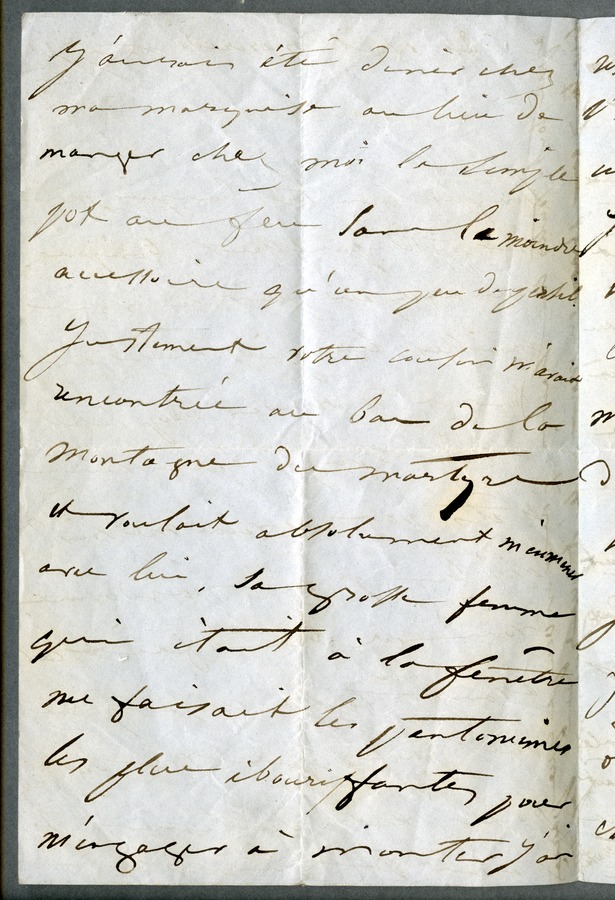 J'aurais été diner chez
ma marquise au lieu de
manger chez moi le simple
pot au feu sans le moindre
accessoire qu'un peu de persil.
Justement votre cousin m'avait
rencontrée au bas de la
montagne des martyrs
et voulait absolument m'emmener
avec lui, sa grosse femme
qui était à la fenêtre
me faisait les pantomimes
les plus ibouriffantes pour
m'engager à monter j'ai